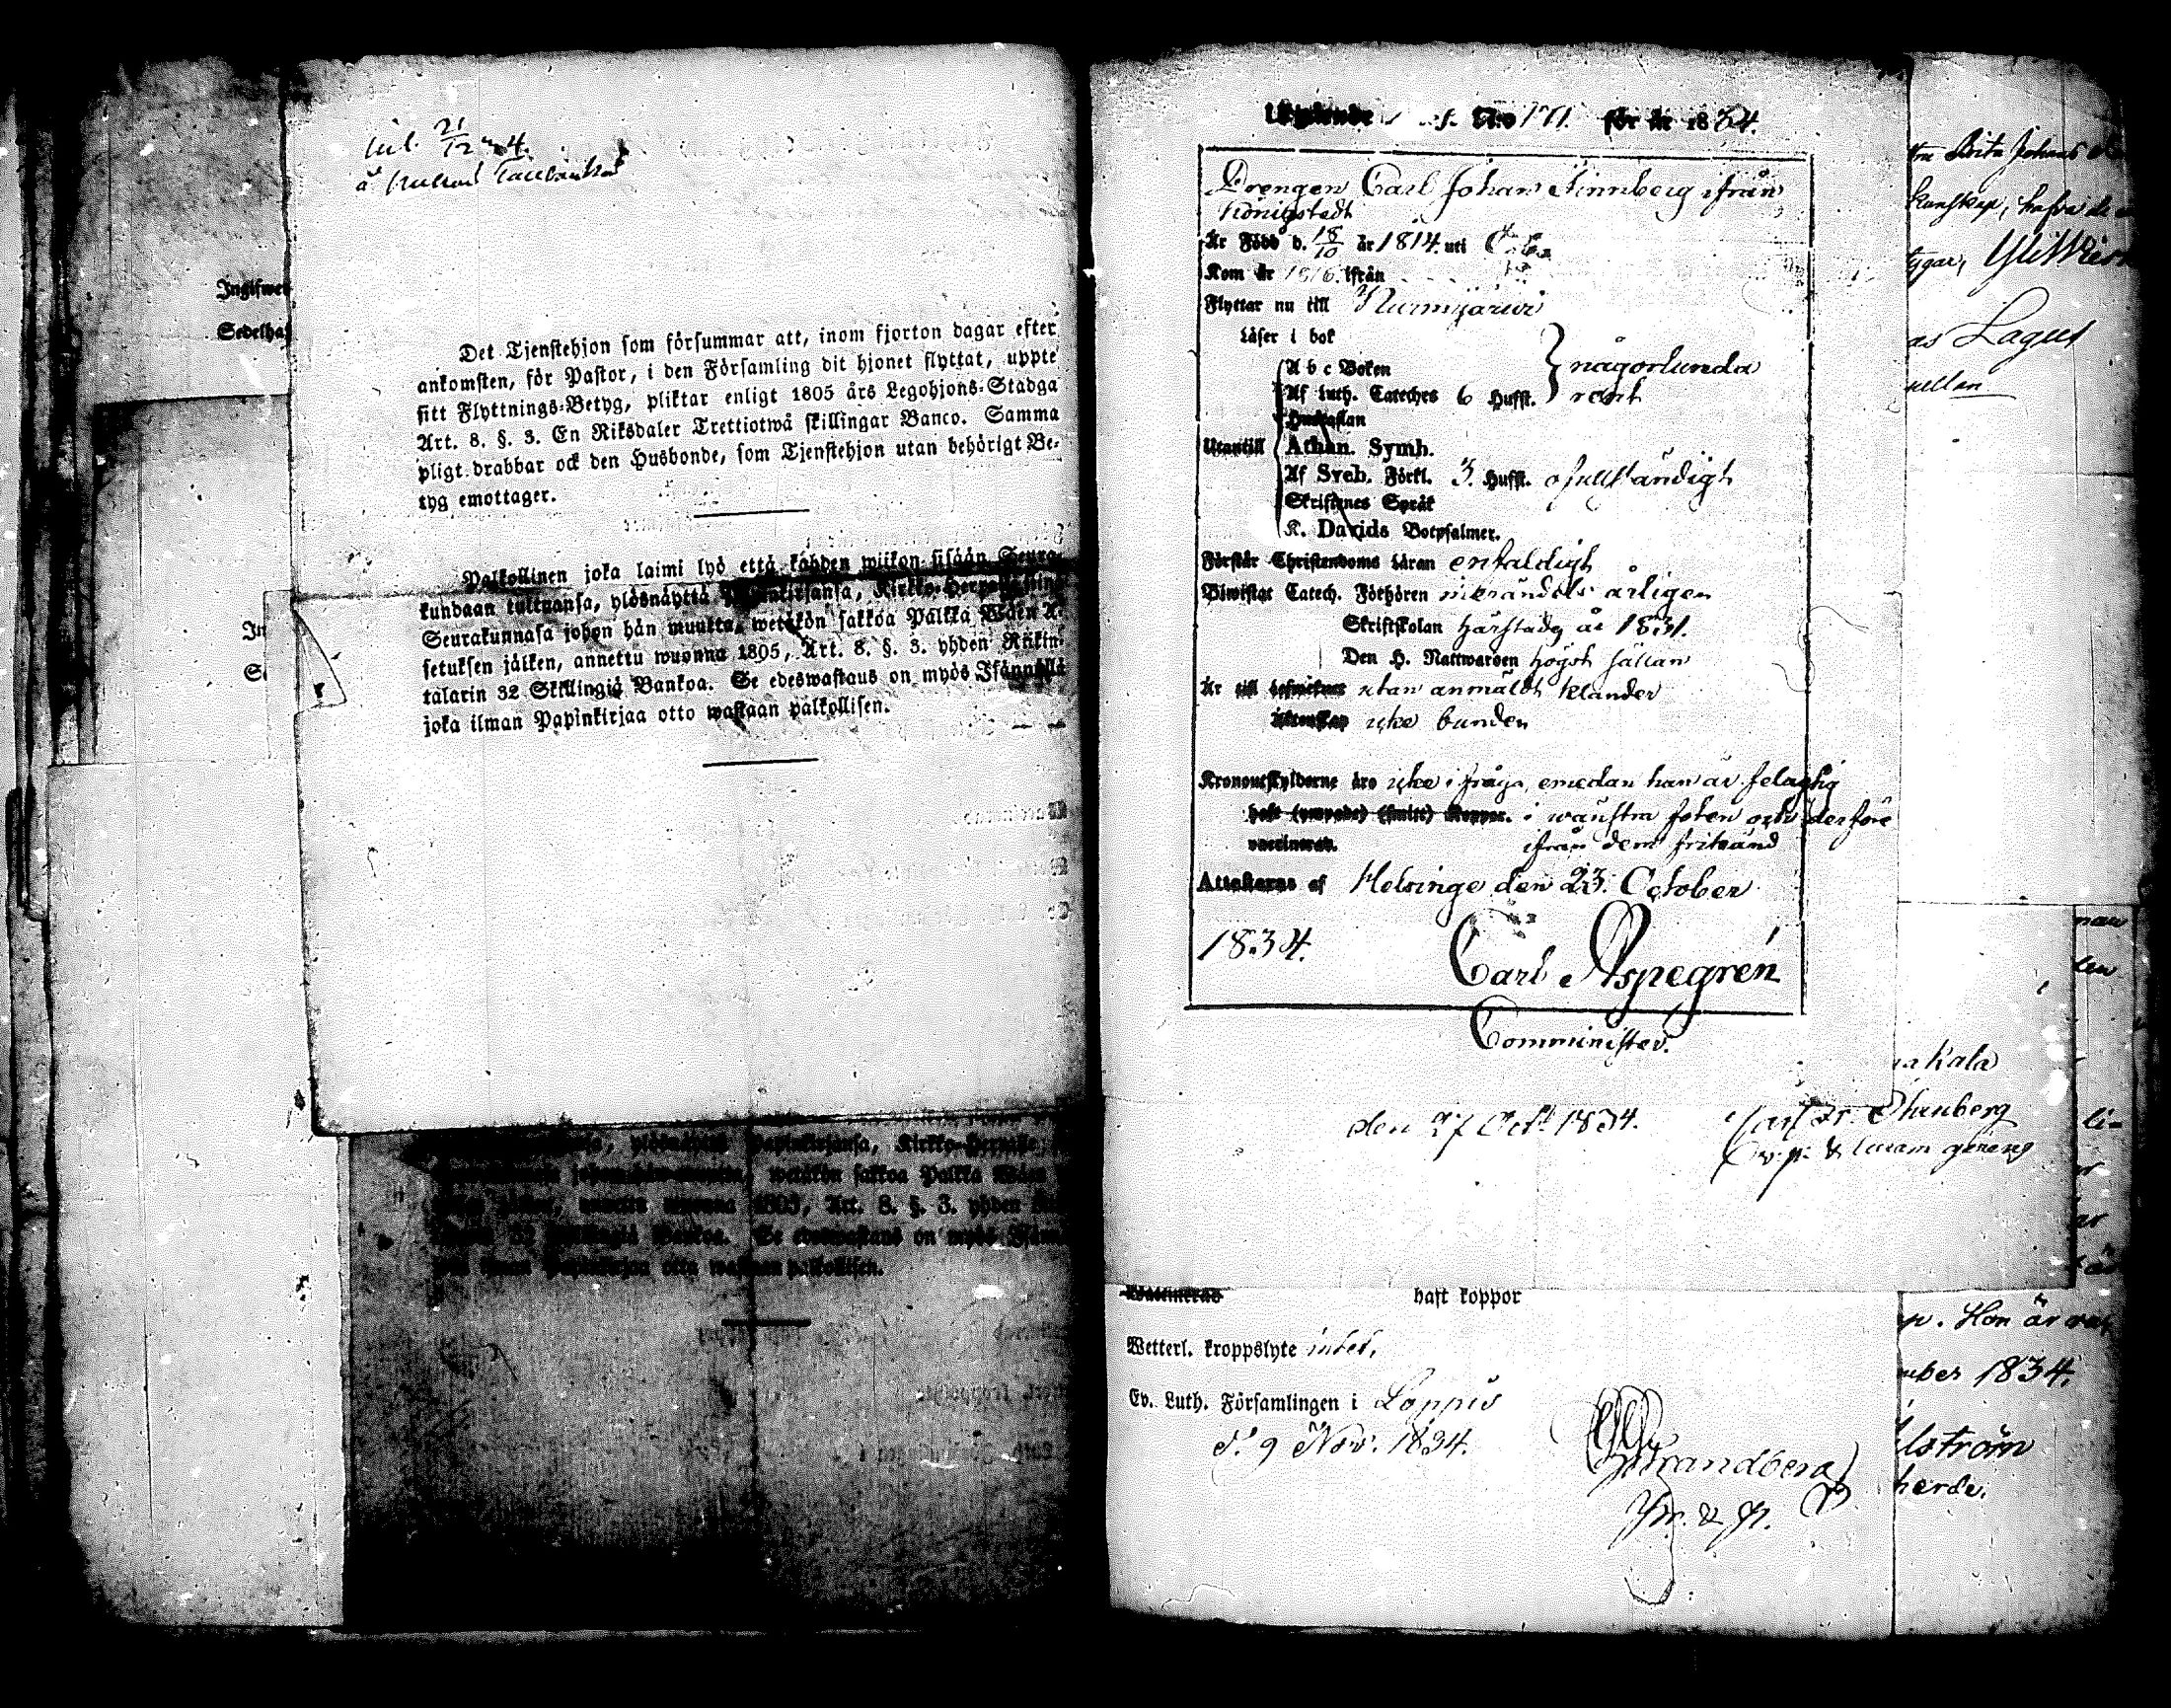 Ingifwes
Sedelha
In
Se
inl. 21/12 34.
å
Det Tjenstehjon som försummar att, inom fjorton dagar efter
ankomsten, för Pastor, i den Församling dit hjonet flyttat, uppte
sitt Flyttnings-Betyg, pliktar enligt 1805 års Legohjons-Stadga
Art. 8. §. 3. En Riksdaler Trettiotwå skillingar Banco. Samma
pligt drabbar ock den Husbonde, som Tjenstehjon utan behörigt Be-
tyg emottager.
Palkollinen joka laimi lyö että kahden wiikon sisään Seura-
kundaan tultuansa, ylösnäyttä Papinkirjansa, Kirkko-Herralle siinä
Seurakunnasa johon hän muutta, wetäkön sakkoa Palkka Wäen A-
setuksen jälken, annettu wuonna 1805, Art. 8. §. 3. yhden Riikin-
talarin 32 Skillingiä Bankoa. Se edeswastaus on myös Isännällä
joka ilman Papinkirjaa otto wastaan palkollisen.
Papinkirjansa, Kirkko-Herralle
wetäkön sakkoa Palkka Wäen
wuonna 1805, Art. 8. §. 3. yhden
32 Skillingiä Bankoa. Se edeswastaus on myös Isän
joka ilman Papinkirjaa otto wastaan palkollisen.
Utflyttande N:o 171. för år 1834.
Drengen Carl Johan Finnberg ifrån
Königstedt
Är Född d. 18/10 år 1814. uti
Kom år 1816. ifrån
Flyttar nu till Nurmijärwi
Läser i bok
A b c Boken
Af Luth. Cateches 6 Hufst.
någorlunda
rent
Hustaflan
Utantill
Athan. Symb.
Af Sveb. Förkl. 3. Hufst. ofullständigt
Skriftenes Språk
K. Davids Botpsalmer.
Förstår Christendoms Läran enfaldigt
Biwistat Catech. Förhören årligen
Skriftskolan härstädes år 1831.
Den H. Nattwarden högst sällan
Är till lefwernet utan anmäldt klander
Äktenskap icke bunden
Kronoutskylderne äro icke i fråga, emedan han är felaktig
haft (ympade) (smitt) Koppor. i wänstra foten och derföre
vaccinerad. ifrån dem frikänd
Attesteras af Helsinge den 23. October
1834. Carl Aspegrén
Comminister.
den 27 Oct. 1834.
v. p.
Vaccinerad haft koppor
Wetterl. kroppslyte intet.
Ev. Luth. Församlingen i Loppis
d. 9 Nov. 1834.
Strandberg
Brita Johans
kunskap, hafva de
tygar,
as Lagus
ullan
nan
len
kala
li-
p. Hon är
mber 1834.
lström
herde.